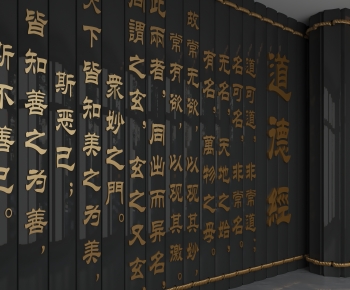 道德經
道可道，非常道；
名可名，非常名。
无名，天地之始，
有名，萬物之母。
故常无欲，以观其妙，
常有欲，以观其徼。
此兩者，同出而异名，
同謂之玄，玄之又玄
衆妙之門。
天下皆知美之为美，
斯恶已；
皆知善之为善，
斯不善已。